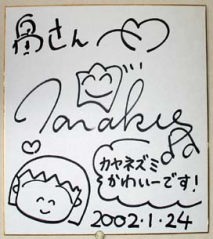 さん
Tanaku
カヤネズミ
かわいーです!
2002.1.24